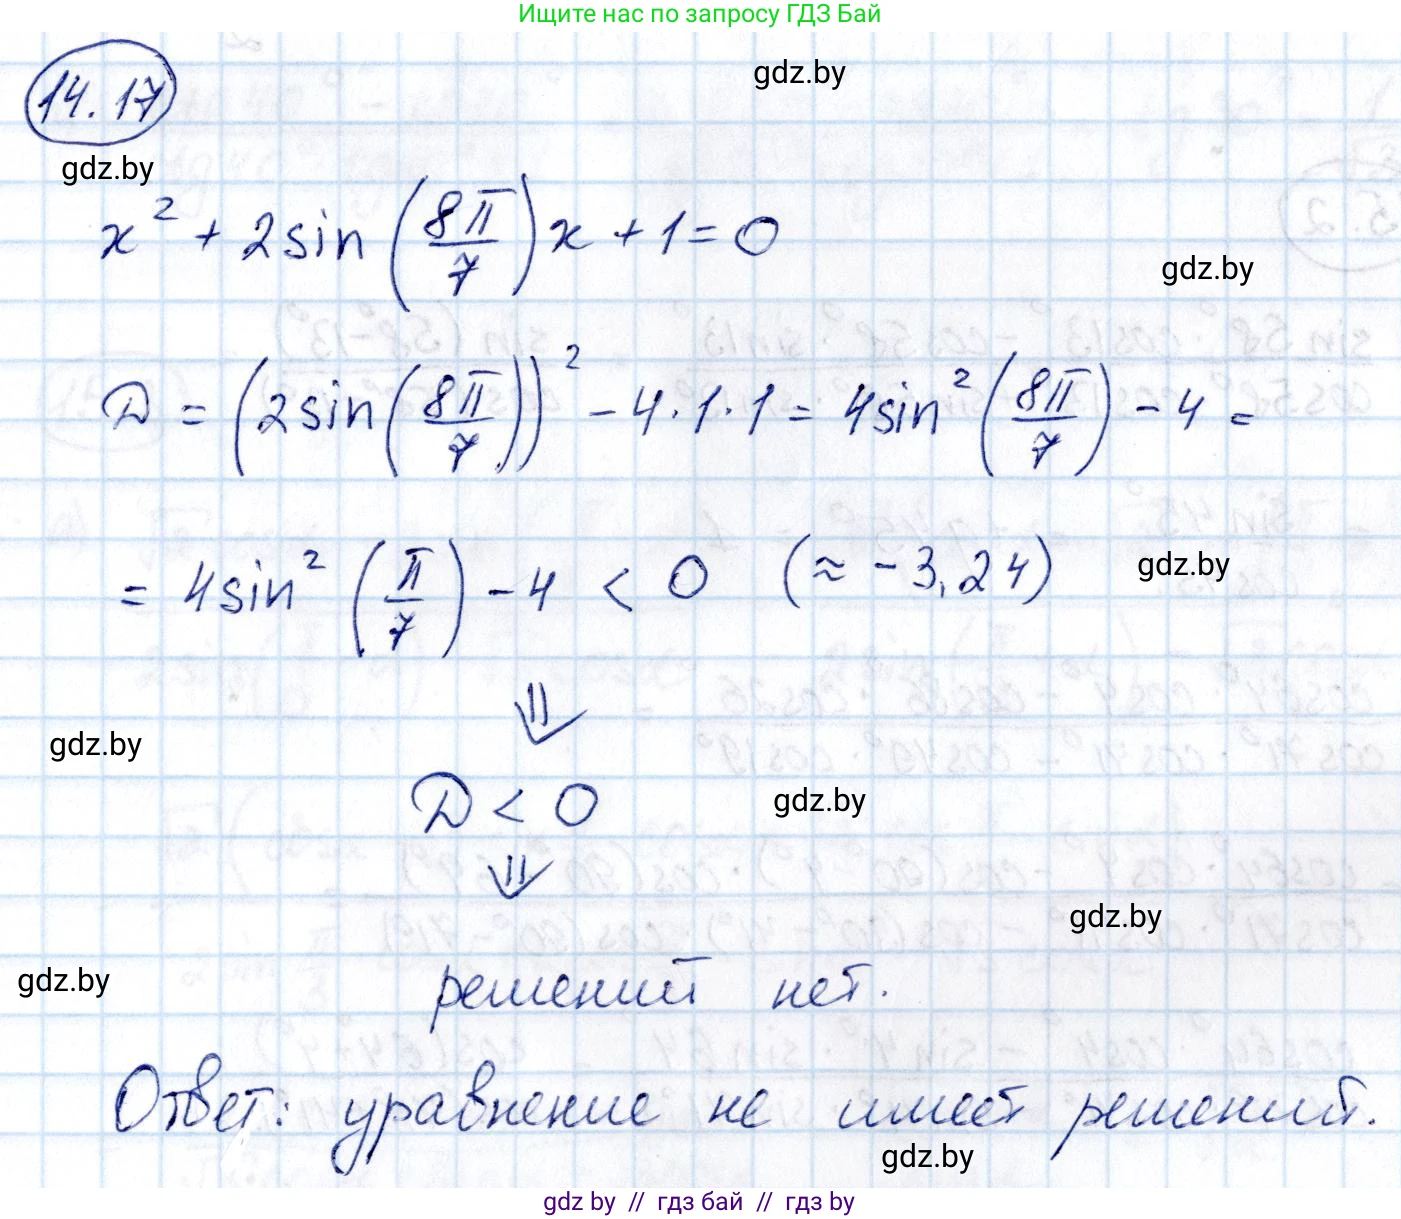 Ищите нас по запросу ГДЗ Бай
gdz.by
14.17
gdz.by
x² + 2sin(8π/7)x + 1 = 0
gdz.by
D = (2sin(8π/7))² - 4·1·1 = 4sin²(8π/7) - 4 =
= 4sin²(π/7) - 4 < 0 (≈ -3,24)
gdz.by
⇓
gdz.by
D < 0
gdz.by
⇓
gdz.by
решений нет.
gdz.by
Ответ: уравнение не имеет решений.
gdz.by
gdz by // гдз бай // гдз by